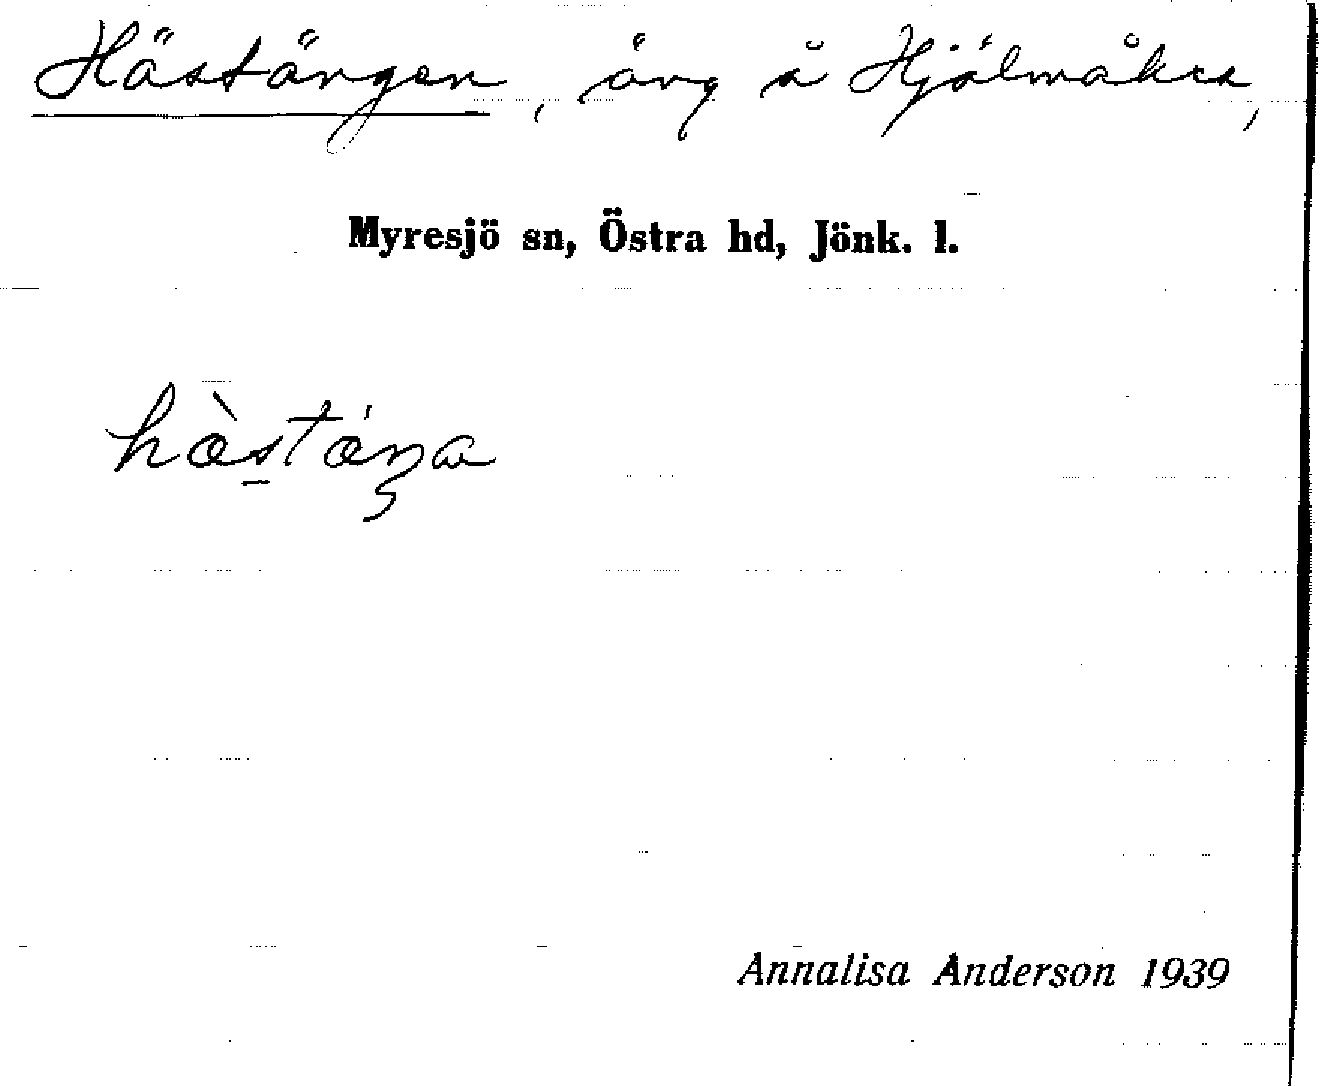 Hästängen, äng å Hjälmåkra,
Myresjö sn, Östra hd, Jönk. l.
hæ̀stǽŋa
Annalisa Anderson 1939